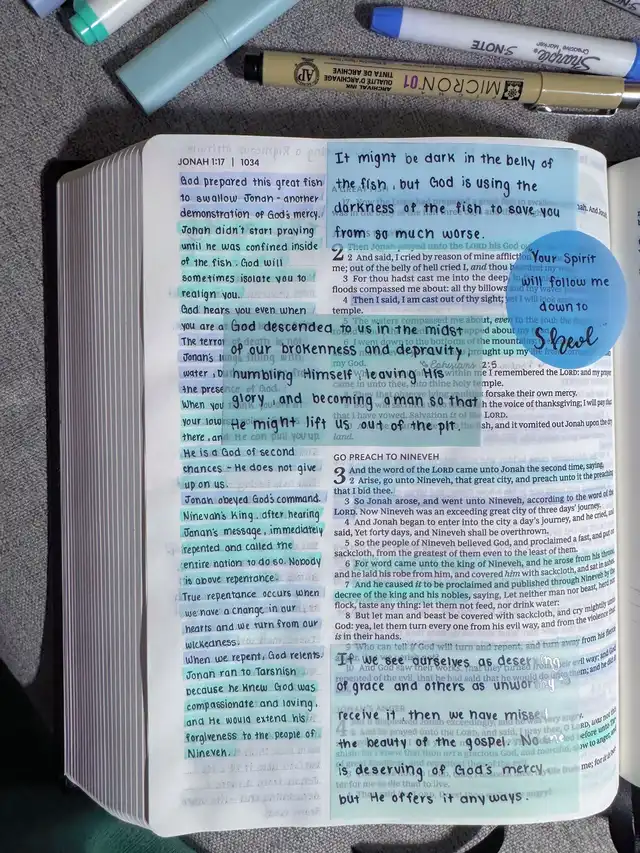 Sharpie
S·NOTE
Creative Marker
MICRON 01
ARCHIVAL INK
QUALITÉ D'ARCHIVE
TINTA DE ARCHIVE
AP
JONAH 1:17 | 1034
God prepared this great fish
to swallow Jonah - another
demonstration of God's mercy.
Jonah didn't start praying
until he was confined inside
of the fish. God will
sometimes isolate you to
realign you.
God hears you even when
you are a
The terror
Jonah's
water,
the presence of God.
When you
your low
there, and He can pull you up
He is a God of second
chances - He does not give
up on us.
Jonah obeyed God's command.
Ninevah's King, after hearing
Jonah's message, immediately
repented and called the
entire nation to do so. Nobody
is above repentance.
True repentance occurs when
we have a change in our
hearts and we turn from our
wickedness.
When we repent, God relents
Jonah ran to Tarshish
because he knew God was
compassionate and loving,
and He would extend his
forgiveness to the people of
Nineveh.
It might be dark in the belly of
the fish, but God is using the
darkness of the fish to save you
from so much worse.
Your Spirit
will follow me
down to
Sheol
2 Then Jonah prayed unto the LORD his God
2 And said, I cried by reason of mine affliction
me; out of the belly of hell cried I, and thou
3 For thou hadst cast me into the deep,
floods compassed me about: all thy billows
4 Then I said, I am cast out of thy sight; yet I will look
temple.
5 The waters compassed me about, even to the soul: the
pped about my
6 I went down to the bottoms of the mountains
my God.
Ephesians 2:5
within me I remembered the LORD: and my prayer
came in unto thee, into thine holy temple.
forsake their own mercy.
the voice of thanksgiving; I will pay
that I have vowed. Salvation is of the LORD.
sh, and it vomited out Jonah upon the dry
land.
God descended to us in the midst
of our brokenness and depravity,
humbling Himself, leaving His
glory, and becoming a man so that
He might lift us out of the pit.
GO PREACH TO NINEVEH
3 And the word of the LORD came unto Jonah the second time, saying,
2 Arise, go unto Nineveh, that great city, and preach unto it the preaching
that I bid thee.
3 So Jonah arose, and went unto Nineveh, according to the word of the
LORD. Now Nineveh was an exceeding great city of three days' journey.
4 And Jonah began to enter into the city a day's journey, and he cried, and
said, Yet forty days, and Nineveh shall be overthrown.
5 So the people of Nineveh believed God, and proclaimed a fast, and put on
sackcloth, from the greatest of them even to the least of them.
6 For word came unto the king of Nineveh, and he arose from his throne,
and he laid his robe from him, and covered him with sackcloth, and sat in ashes.
7 And he caused it to be proclaimed and published through Nineveh by the
decree of the king and his nobles, saying, Let neither man nor beast, herd nor
flock, taste any thing: let them not feed, nor drink water:
8 But let man and beast be covered with sackcloth, and cry mightily unto
God: yea, let them turn every one from his evil way, and from the violence that
is in their hands.
9 Who can tell if God will turn and repent, and turn away from his fierce
If we see ourselves as deserving
of grace and others as unworthy
receive it, then we have missed
the beauty of the gospel. No one
is deserving of God's mercy,
but He offers it anyways.